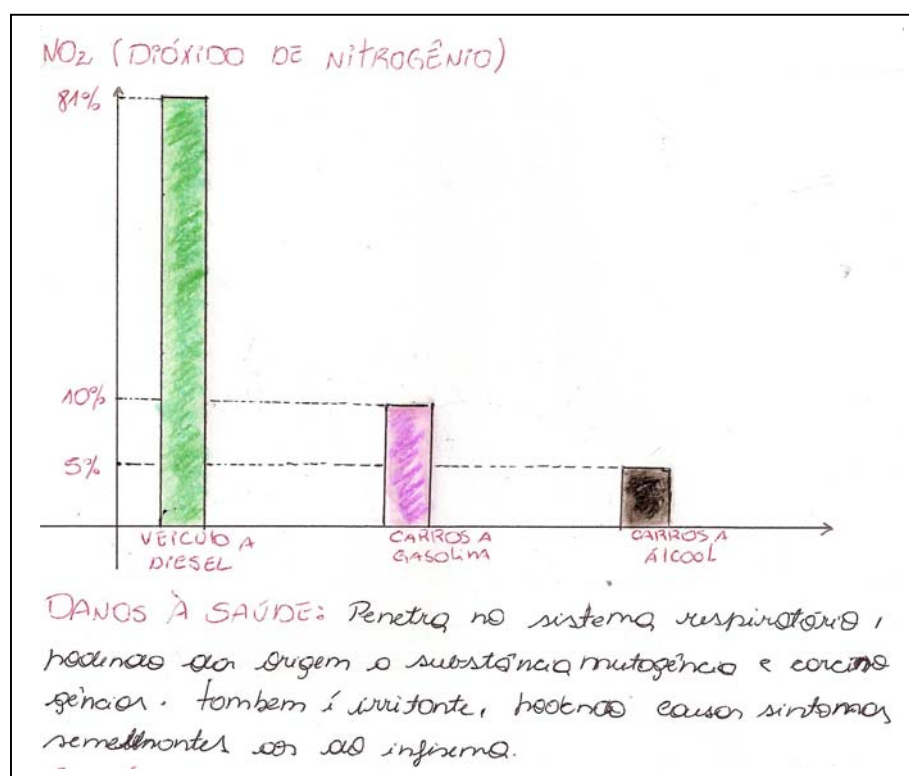 NO₂ (DIÓXIDO DE NITROGÊNIO)
81%
10%
5%
VEICULO A
DIESEL
CARROS A
GASOLINA
CARROS A
ÁLCOOL
DANOS À SAÚDE: Penetra no sistema respiratório,
podendo dar origem a substância mutogência e carcino
gências. também é irritante, podendo causar sintomas
semelhantes aos do infisema.